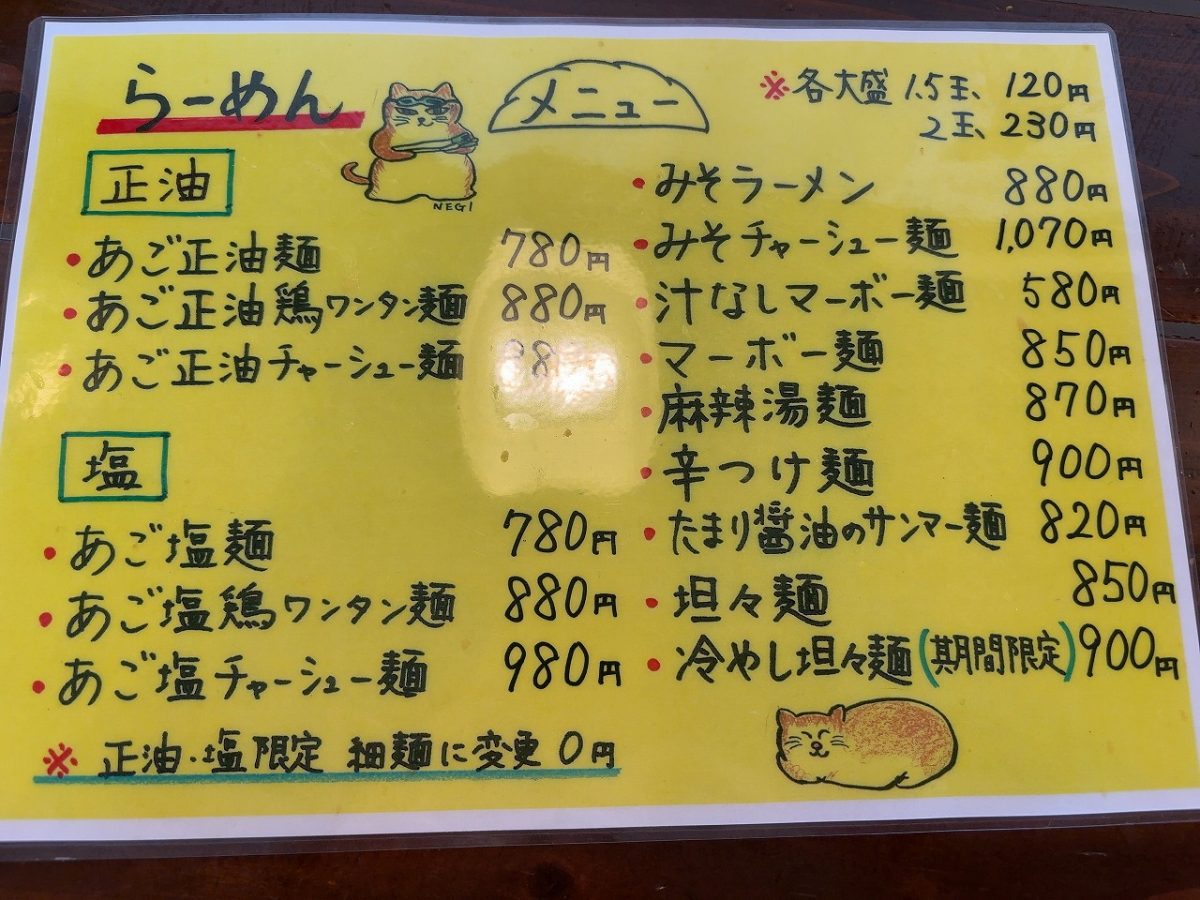 らーめん
メニュー
※各大盛 1.5玉、120円
2玉、230円
NEGI
正油
・あご正油麺 780円
・あご正油鶏ワンタン麺 880円
・あご正油チャーシュー麺
塩
・あご塩麺 780円
・あご塩鶏ワンタン麺 880円
・あご塩チャーシュー麺 980円
※ 正油・塩限定 細麺に変更 0円
・みそラーメン 880円
・みそチャーシュー麺 1,070円
・汁なしマーボー麺 580円
・マーボー麺 850円
・麻辣湯麺 870円
・辛つけ麺 900円
・たまり醤油のサンマー麺 820円
・坦々麺 850円
・冷やし坦々麺(期間限定) 900円